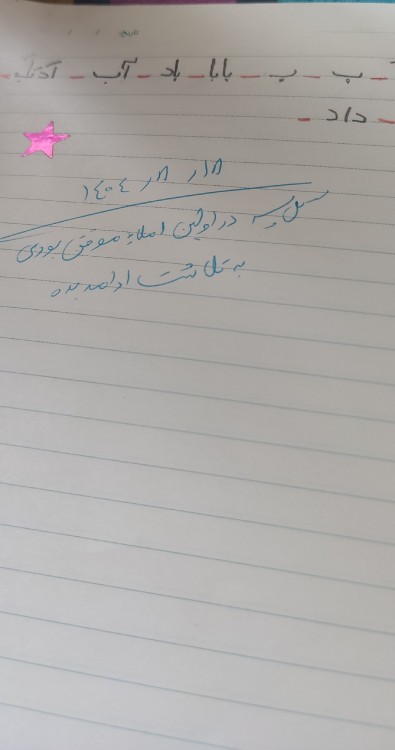 ـ بـ ـ ب ـ بابا ـ باد ـ آب ـ
ـ داد ـ
۱۴۰۴
گل پسر در اولین املایت موفق بودی
به تلاشت ادامه بده